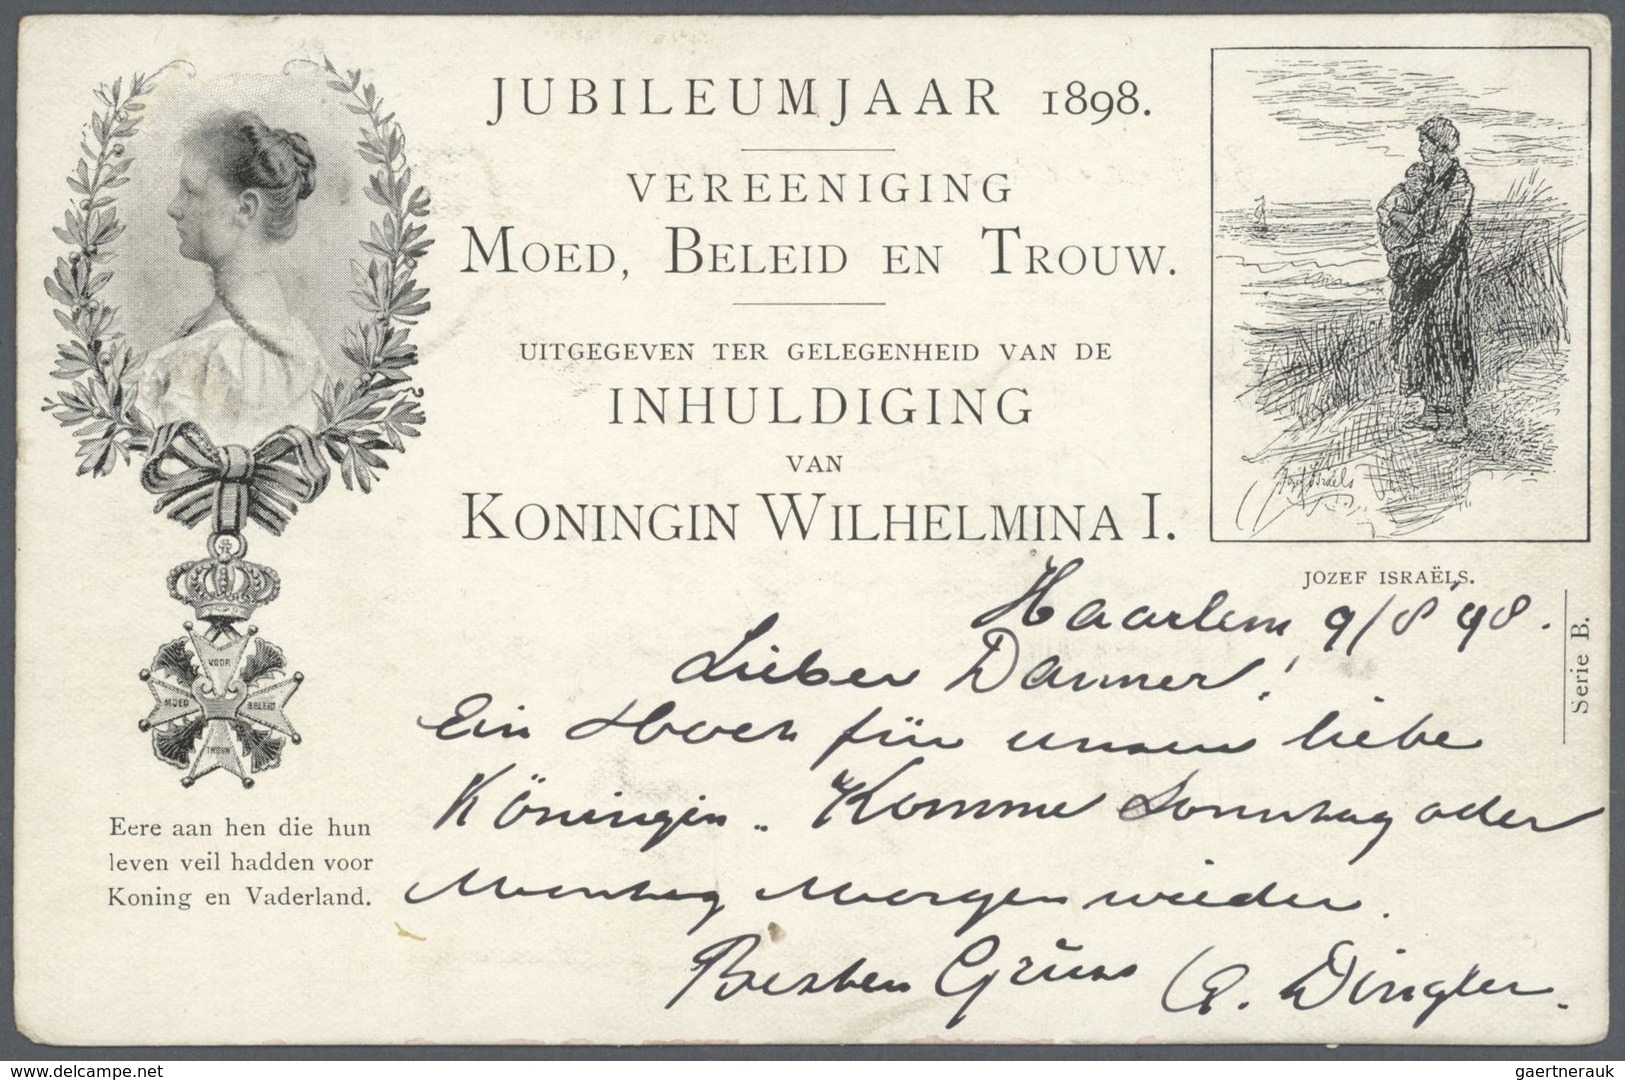 JUBILEUMJAAR 1898.
VEREENIGING
MOED, BELEID EN TROUW.
UITGEGEVEN TER GELEGENHEID VAN DE
INHULDIGING
VAN
KONINGIN WILHELMINA I.
VOOR
MOED BELEID
TROUW
Eere aan hen die hun
leven veil hadden voor
Koning en Vaderland.
Jozef Israels
JOZEF ISRAËLS.
Serie B.
Haarlem 9/8 98.
Lieber Danner!
Ein Hoch für unsere liebe
Königin. Komme Sonntag oder
Montag Morgen wieder.
Besten Gruss G. Dingler.
www.delcampe.net
gaertnerauk